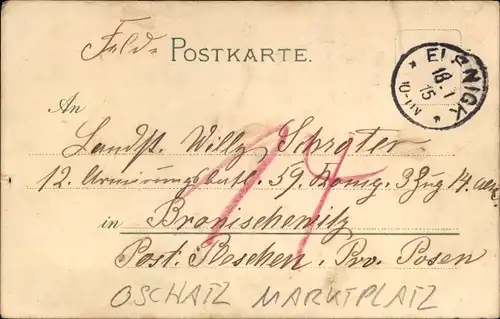 Feld- POSTKARTE.
ELSNIGK
18.1
15
10-11V
An
Landst. Willy Schröter
12. Armierungsbatl. 59. Komp. 3 Zug 14.
in Bronischewitz
Post. Pleschen. Prv. Posen
OSCHATZ MARKTPLATZ